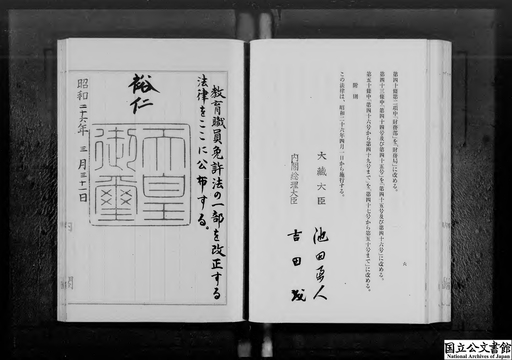 第四十條第二項中「財務部」を「財務局」に改める。
第四十三條中「第四十四号及び第四十五号」を「第四十五号及び第四十六号」に改める。
第五十條中「第四十六号から第四十九号まで」を「第四十七号から第五十号まで」に改める。
附則
この法律は、昭和二十六年四月一日から施行する。
大藏大臣 池田勇人
内閣総理大臣 吉田茂
教育職員免許法の一部を改正する
法律をここに公布する。
裕仁
天皇御璽
昭和二十六年三月三十一日
国立公文書館
National Archives of Japan